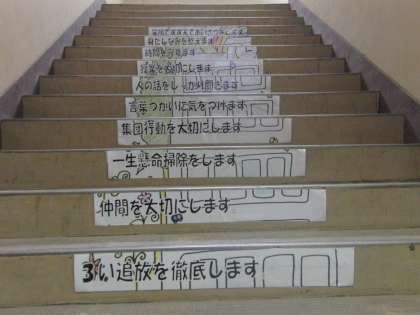 身だしなみを整えます
時間を守ります
授業を大切にします
人の話をしっかり聞きます
言葉づかいに気をつけます
集団行動を大切にします
一生懸命掃除をします
仲間を大切にします
3い追放を徹底します